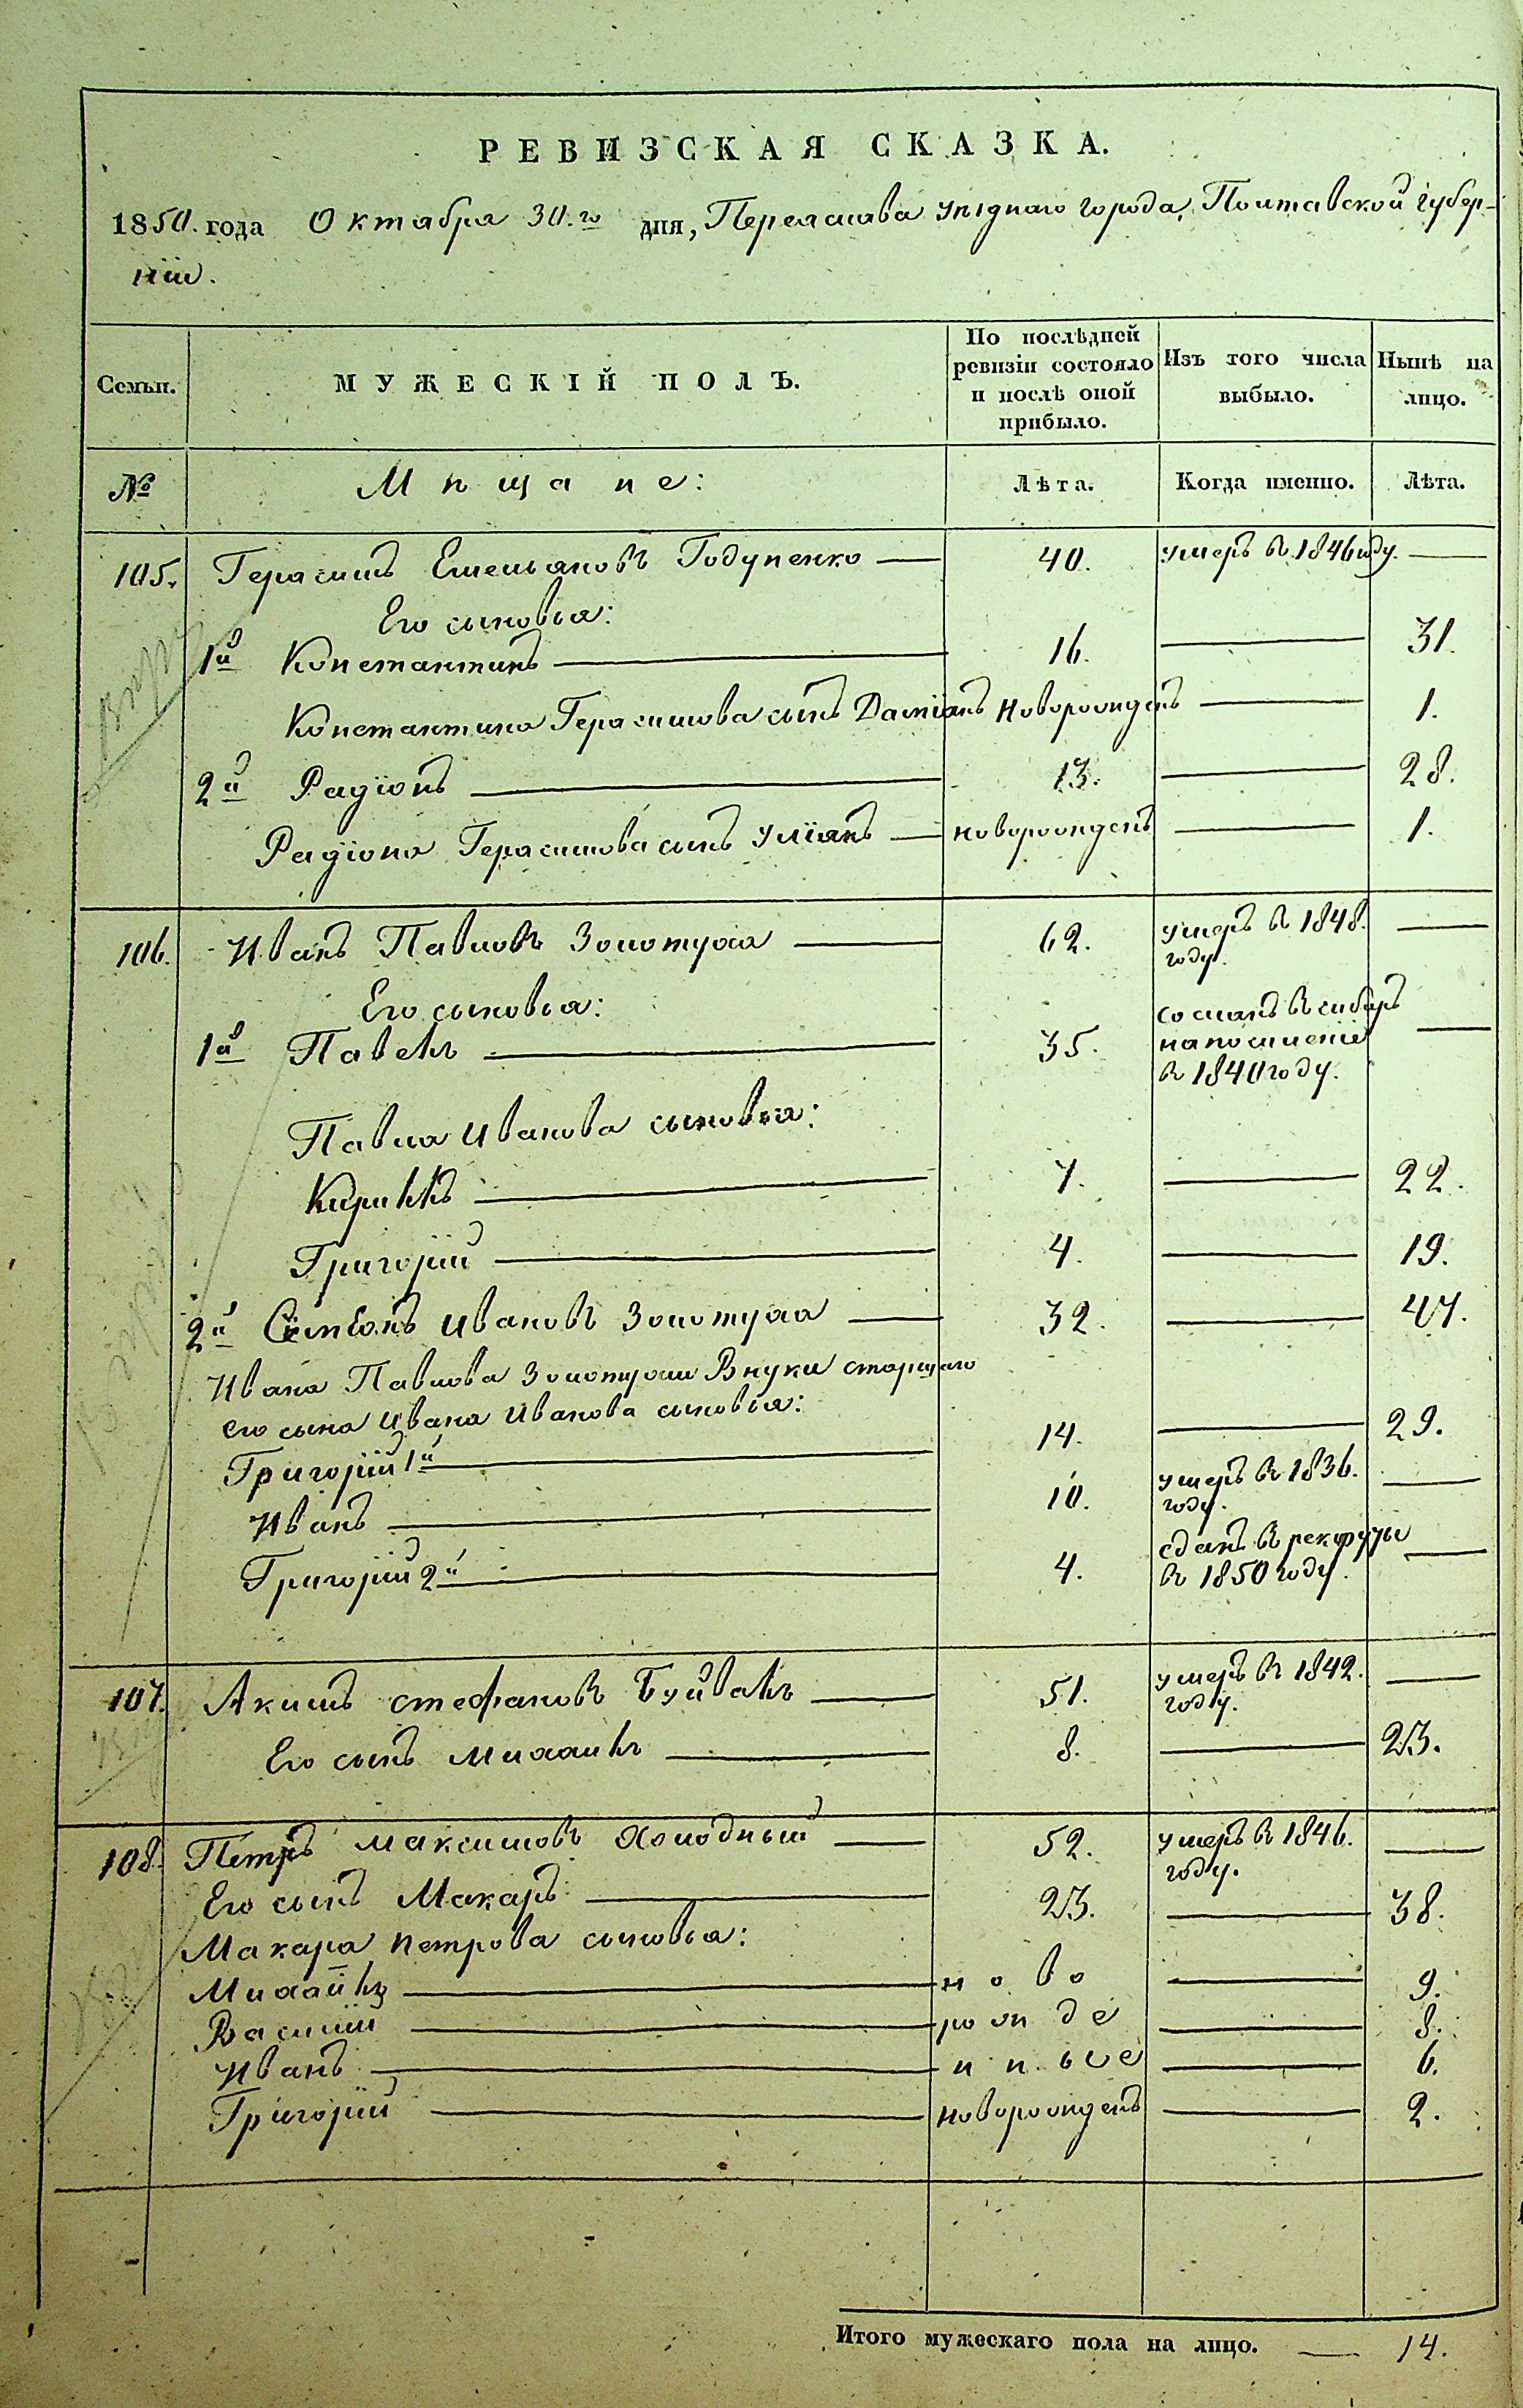 РЕВИЗСКАЯ СКАЗКА.
1850. года Октября 30.го дня, Переяслава уѣзднаго города, Полтавской губер-
ніи.
Семьи. МУЖЕСКІЙ ПОЛЪ. По послѣдней ревизіи состояло и послѣ оной прибыло. Изъ того числа выбыло. Нынѣ на лицо.
№ Мѣщане: Лѣта. Когда именно. Лѣта.
105. Герасимъ Емельяновъ Годуненко — 40. умеръ въ 1846 году. —
Его сыновья:
1й Константинъ — 16. — 31.
Константина Герасимова сынъ Даміянъ новорожденъ — 1.
2й Радіонъ — 13. — 28.
Радіона Герасимова сынъ Уліянъ — новорожденъ — 1.
106. Иванъ Павловъ Золотуха — 62. умеръ въ 1848. году. —
Его сыновья:
1й Павелъ — 35. сосланъ въ сибирь на поселеніе въ 1840 году. —
Павла Иванова сыновья:
Кирилъ — 7. — 22.
Григорій — 4. — 19.
2й Симеонъ Ивановъ Золотуха — 32. — 47.
Ивана Павлова Золотухи Внуки старшаго
его сына Ивана Иванова сыновья:
Григорій 1й — 14. — 29.
Иванъ — 10. умеръ въ 1836. году. —
Григорій 2й — 4. сданъ въ рекруты въ 1850 году. —
107. Акимъ Стефановъ Буйвалъ — 51. умеръ въ 1842. году. —
Его сынъ Михаилъ — 8. — 23.
108. Петръ Максимовъ Холодный — 52. умеръ въ 1846. году. —
Его сынъ Макаръ — 23. — 38.
Макара Петрова сыновья:
Михаилъ — ново — 9.
Василій — рожде — 8.
Иванъ — нные — 6.
Григорій — новорожденъ — 2.
Итого мужескаго пола на лицо. — 14.